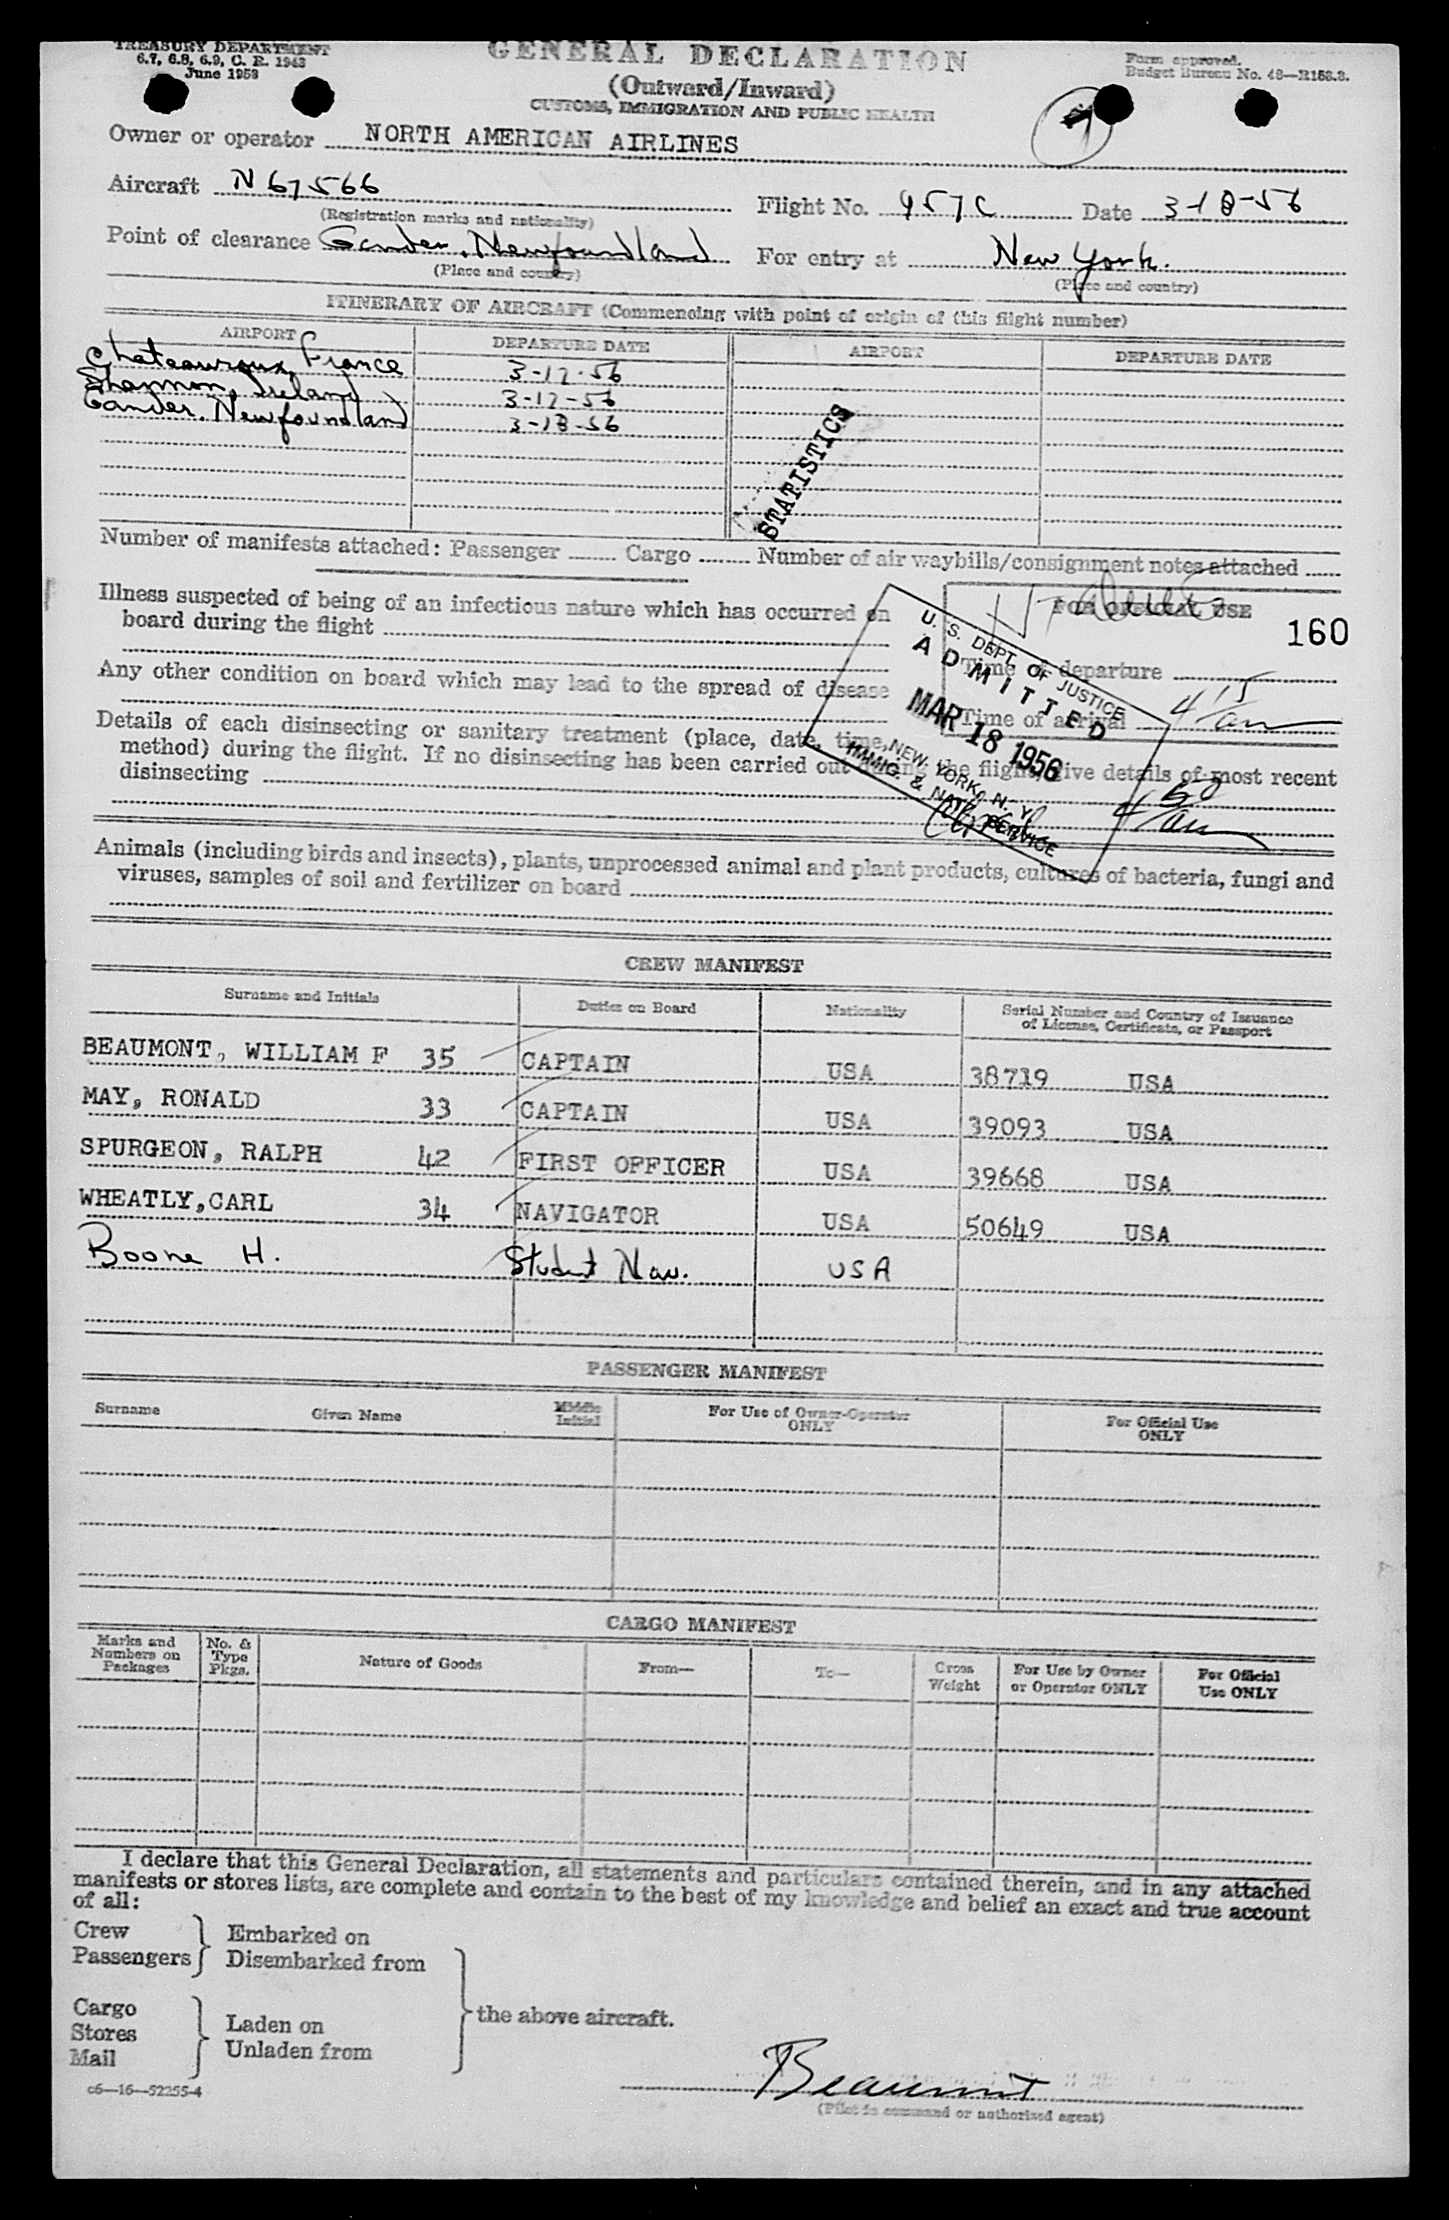 TREASURY DEPARTMENT
6.7, 6.8, 6.9, C. R. 1943
June 1953
GENERAL DECLARATION
(Outward/Inward)
CUSTOMS, IMMIGRATION AND PUBLIC HEALTH
Form approved.
Budget Bureau No. 48—R158.3.
Owner or operator NORTH AMERICAN AIRLINES
Aircraft N 67566
(Registration marks and nationality)
Flight No. 957C Date 3-18-56
Point of clearance Gander, Newfoundland
(Place and country)
For entry at New York.
(Place and country)
ITINERARY OF AIRCRAFT (Commencing with point of origin of this flight number)
AIRPORT DEPARTURE DATE AIRPORT DEPARTURE DATE
Chateauroux, France 3-17-56
Shannon, Ireland 3-17-56
Gander, Newfoundland 3-18-56
STATISTICS
Number of manifests attached: Passenger Cargo Number of air waybills/consignment notes attached
Illness suspected of being of an infectious nature which has occurred on
board during the flight
FOR OFFICIAL USE
160
Time of departure
Any other condition on board which may lead to the spread of disease
Time of arrival 4 15 am
U. S. DEPT. OF JUSTICE
ADMITTED
MAR 18 1956
NEW YORK, N. Y.
IMMIG. & NATZ. SERVICE
Details of each disinsecting or sanitary treatment (place, date, time,
method) during the flight. If no disinsecting has been carried out during the flight, give details of most recent
disinsecting
4 50 am
Animals (including birds and insects), plants, unprocessed animal and plant products, cultures of bacteria, fungi and
viruses, samples of soil and fertilizer on board
CREW MANIFEST
Surname and Initials Duties on Board Nationality Serial Number and Country of Issuance
of License, Certificate, or Passport
BEAUMONT, WILLIAM F 35 CAPTAIN USA 38719 USA
MAY, RONALD 33 CAPTAIN USA 39093 USA
SPURGEON, RALPH 42 FIRST OFFICER USA 39668 USA
WHEATLY,CARL 34 NAVIGATOR USA 50649 USA
Boone H. Student Nav. USA
PASSENGER MANIFEST
Surname Given Name Middle
Initial For Use of Owner-Operator
ONLY For Official Use
ONLY
CARGO MANIFEST
Marks and
Numbers on
Packages
No. &
Type
Pkgs.
Nature of Goods
From—
To—
Gross
Weight
For Use by Owner
or Operator ONLY
For Official
Use ONLY
I declare that this General Declaration, all statements and particulars contained therein, and in any attached
manifests or stores lists, are complete and contain to the best of my knowledge and belief an exact and true account
of all:
Crew
Passengers
Embarked on
Disembarked from
Cargo
Stores
Mail
Laden on
Unladen from
the above aircraft.
c6—16—52255-4
Beaumont
(Pilot in command or authorized agent)